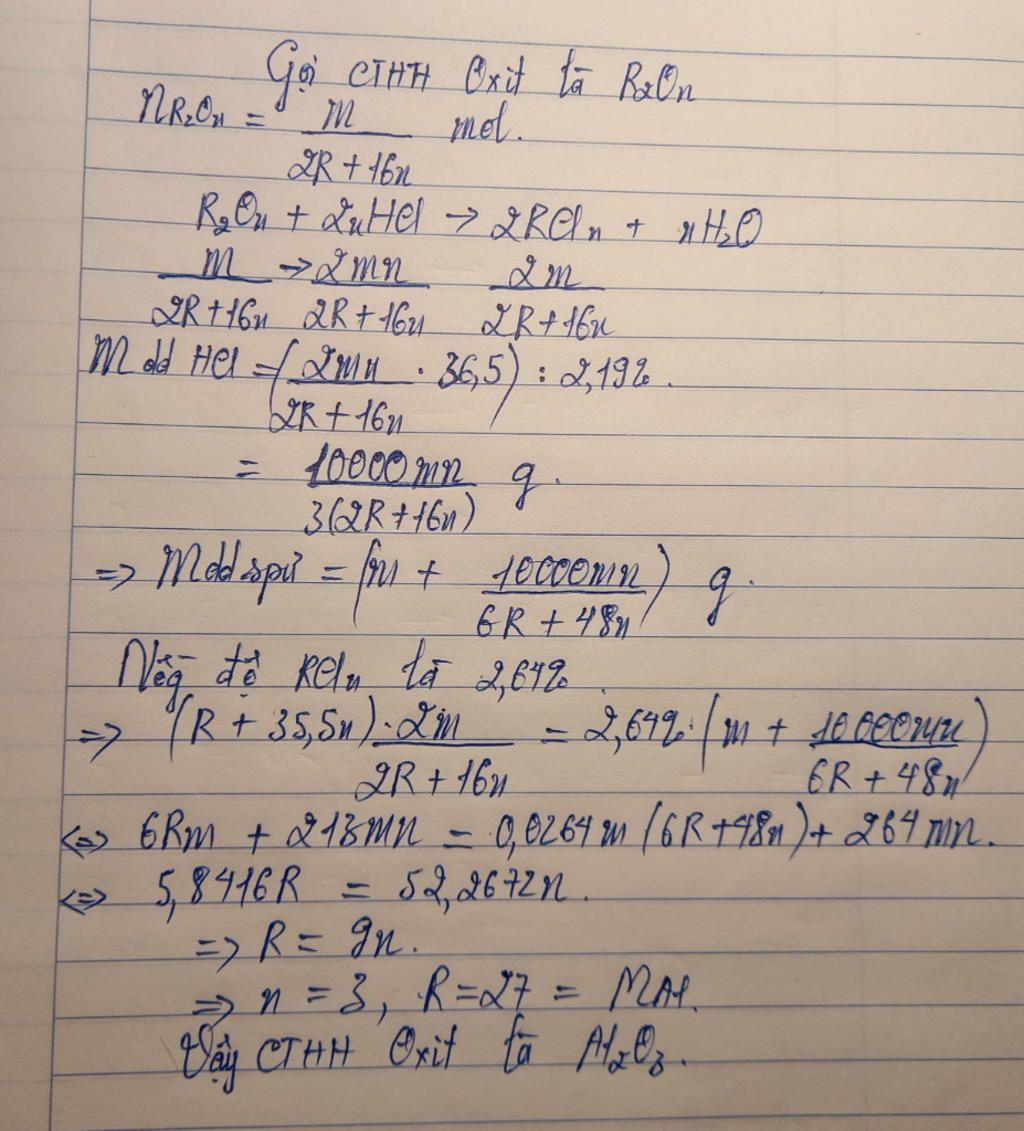 Gọi CTHH Oxit là R₂Oₙ
nR₂Oₙ = m / (2R + 16n) mol.
R₂Oₙ + 2nHCl → 2RClₙ + nH₂O
m / (2R+16n) → 2mn / (2R+16n) 2m / (2R+16n)
m dd HCl = (2mn / (2R + 16n) . 36,5) : 2,19%.
= 10000mn / 3(2R+16n) g.
=> m dd spứ = (m + 10000mn / (6R + 48n)) g.
Nồng độ RClₙ là 2,64%.
=> (R + 35,5n) . 2m / (2R + 16n) = 2,64% . (m + 10000mn / (6R + 48n))
<=> 6Rm + 213mn = 0,0264m (6R+48n) + 264mn.
<=> 5,8416R = 52,2672n.
=> R = 9n.
=> n = 3, R = 27 = MAl.
Vậy CTHH Oxit là Al₂O₃.